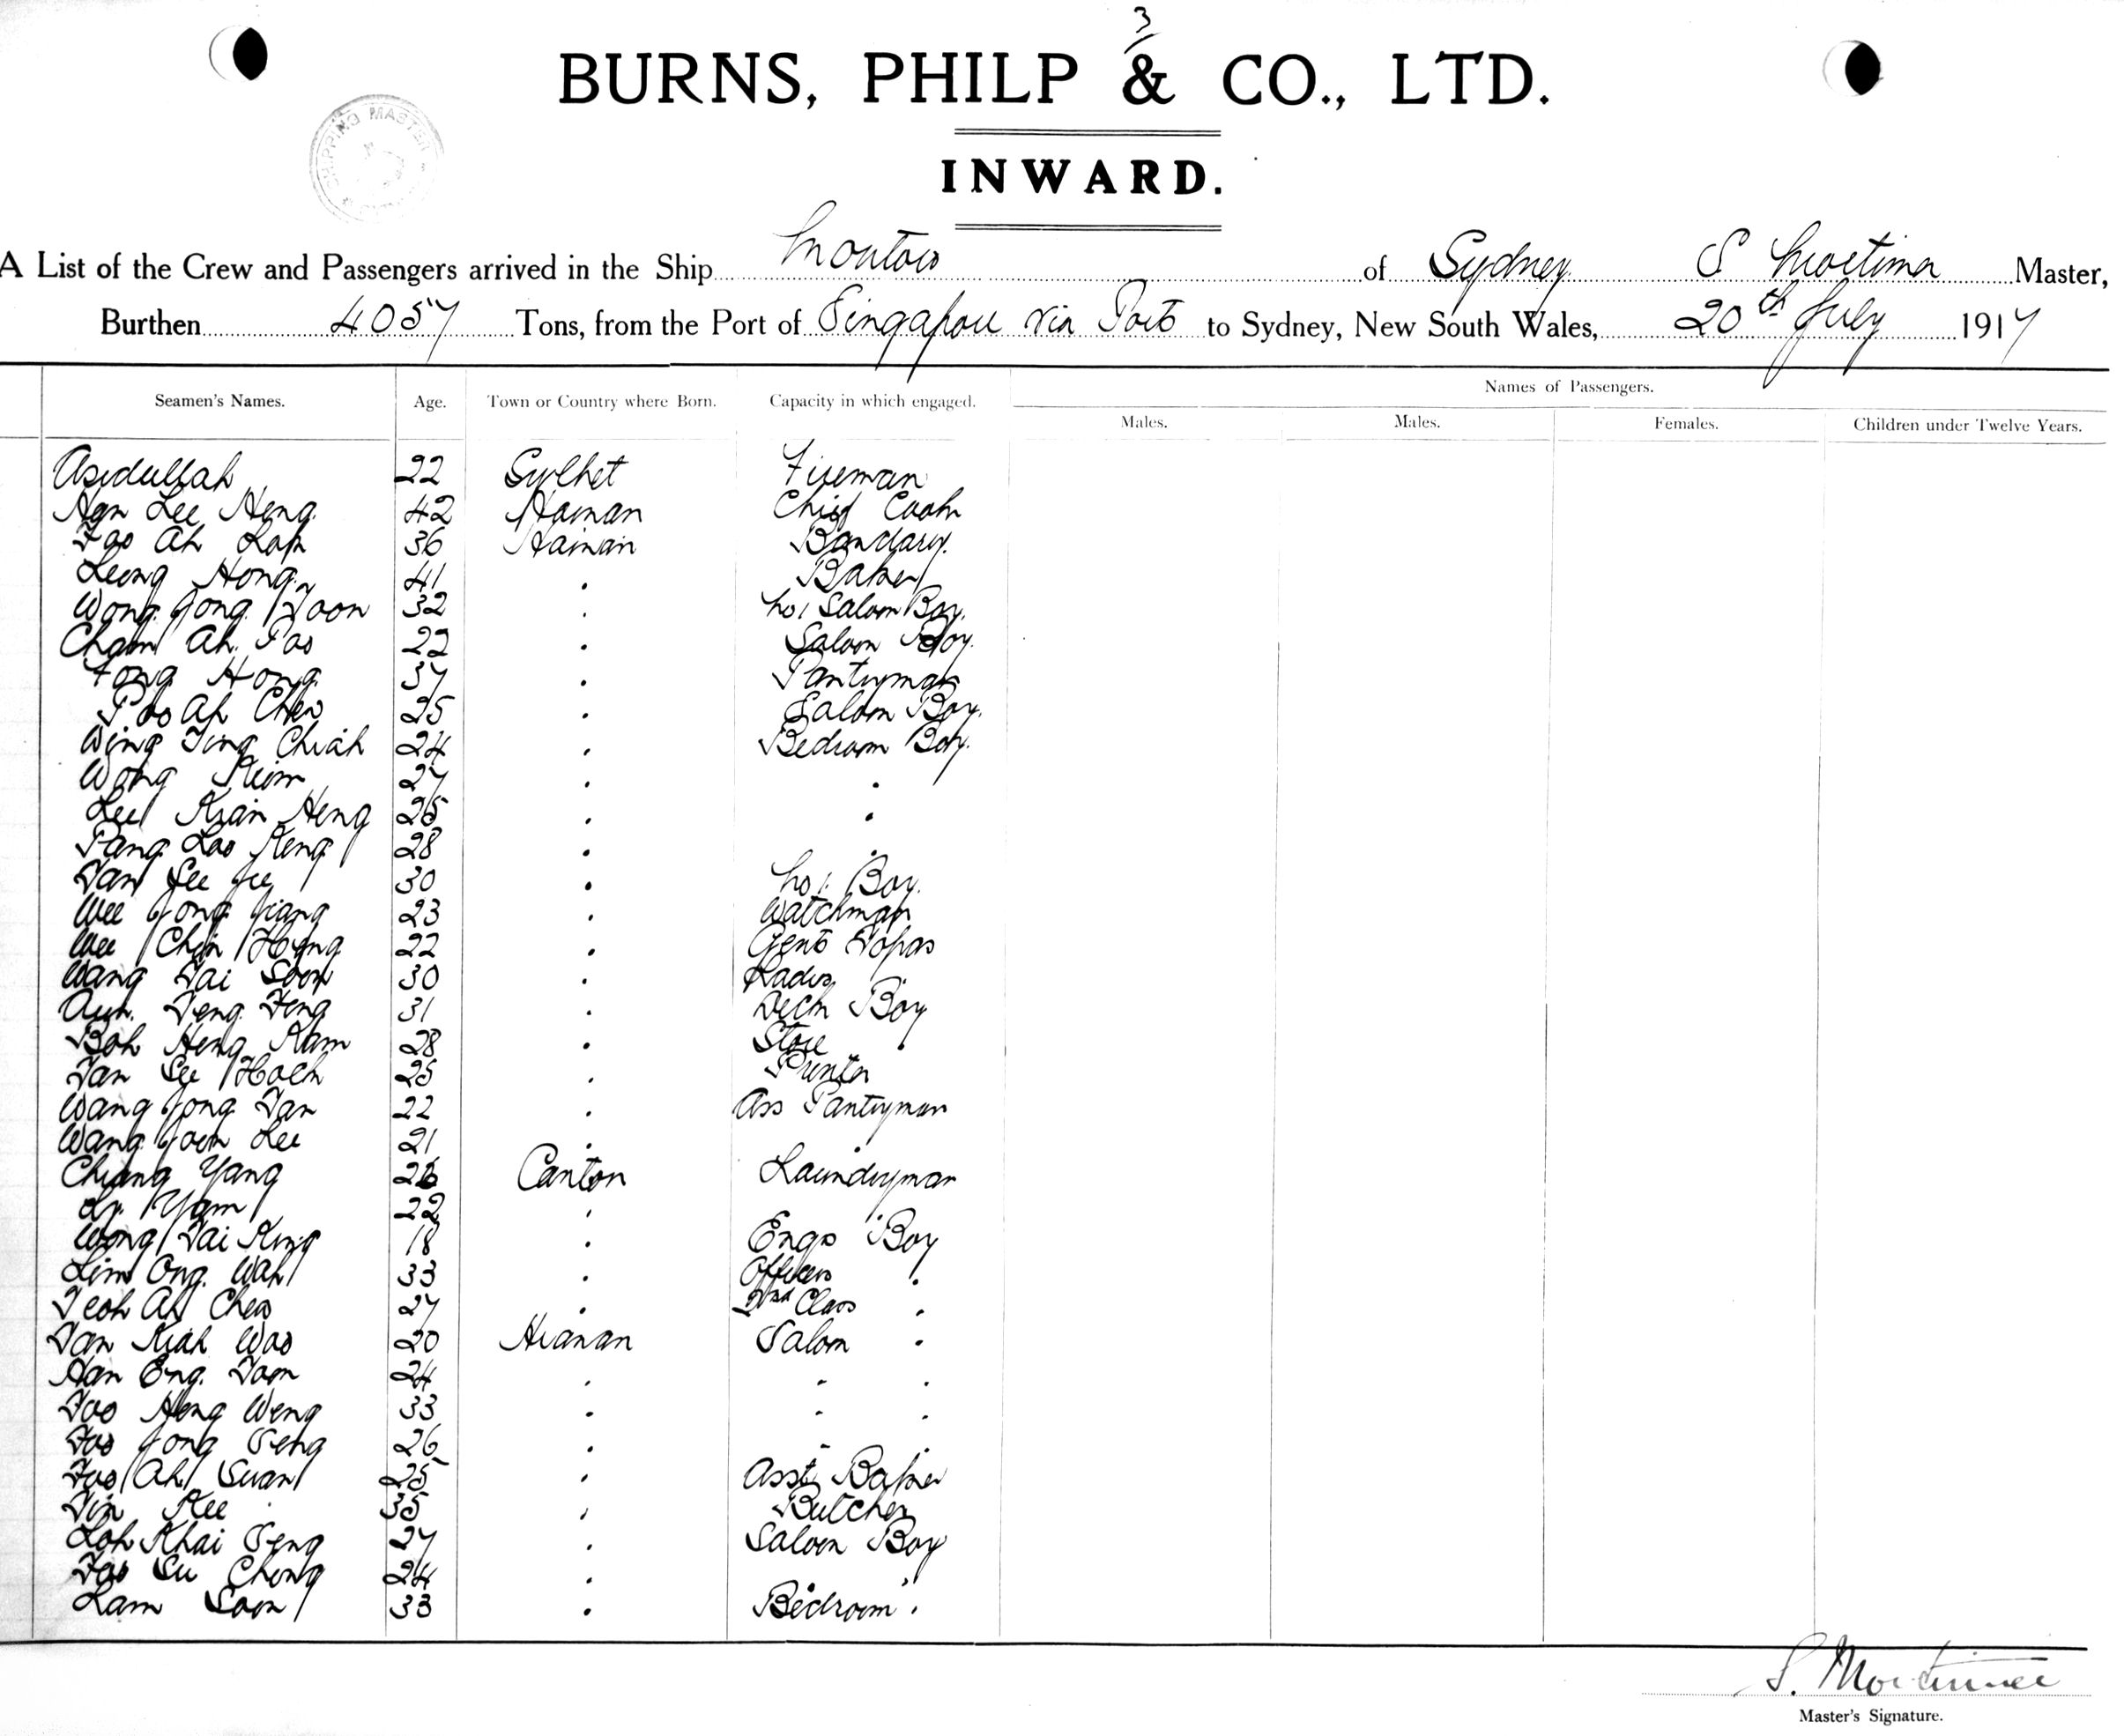 3
BURNS, PHILP & CO., LTD.
SHIPPING MASTER
INWARD.
A List of the Crew and Passengers arrived in the Ship Montoro of Sydney S Mortimer Master,
Burthen 4057 Tons, from the Port of Singapore via Ports to Sydney, New South Wales, 20th July 1917
Seamen's Names. Age. Town or Country where Born. Capacity in which engaged. Names of Passengers.
Males. Males. Females. Children under Twelve Years.
Asidullah 22 Sylhet Fireman
Han Lee Heng. 42 Hainan Chief Cook
Foo Ah Lok 36 Hainan Bandary.
Leong Hong. 41 " Baker
Wong Yong Yoon 32 " No1 Saloon Boy.
Cham Ah. Poo 22 " Saloon Boy.
Fong Hong. 37 " Pantryman
Poo Ah Chew 25 " Saloon Boy.
Wing Ting Chiah 24 " Bedroom Boy.
Wong Kim 27 " "
Lee Kian Heng 25 " "
Pang Loo Keng 28 " "
Tan See Jee 30 " No 1. Boy.
Wee Yong Jiang 23 " Watchman
Wee Chin Heng 22 " Gents Topas
Wang Tai Soon 30 " Ladies "
Aun. Teng Feng 31 " Deck Boy
Boh Heng Kam 28 " Store "
Tan See Hoch 25 " Printer
Wang Yong Tan 22 " Ass Pantryman
Wang Yoon Lee 21 " "
Chiang Yang 26 Canton Laundryman
Yam 22 " "
Wong Tai King 18 " Engs Boy
Lim Ong. Wah 33 " Officers "
Teoh Ah Chew 27 " 2nd Class "
Tan Kiah Woo 20 Hianan Saloon "
Han Eng. Tom 24 " " "
Foo Heng Weng 33 " " "
Foo Jong Seng 26 " " "
Foo Ah Suan 25 " Asst Baker
Tin Kee 35 " Butcher
Loh Khai Seng 27 " Saloon Boy
Foo Su Chong 24 " " "
Lam Soon 33 " Bedroom "
S. Mortimer
Master's Signature.